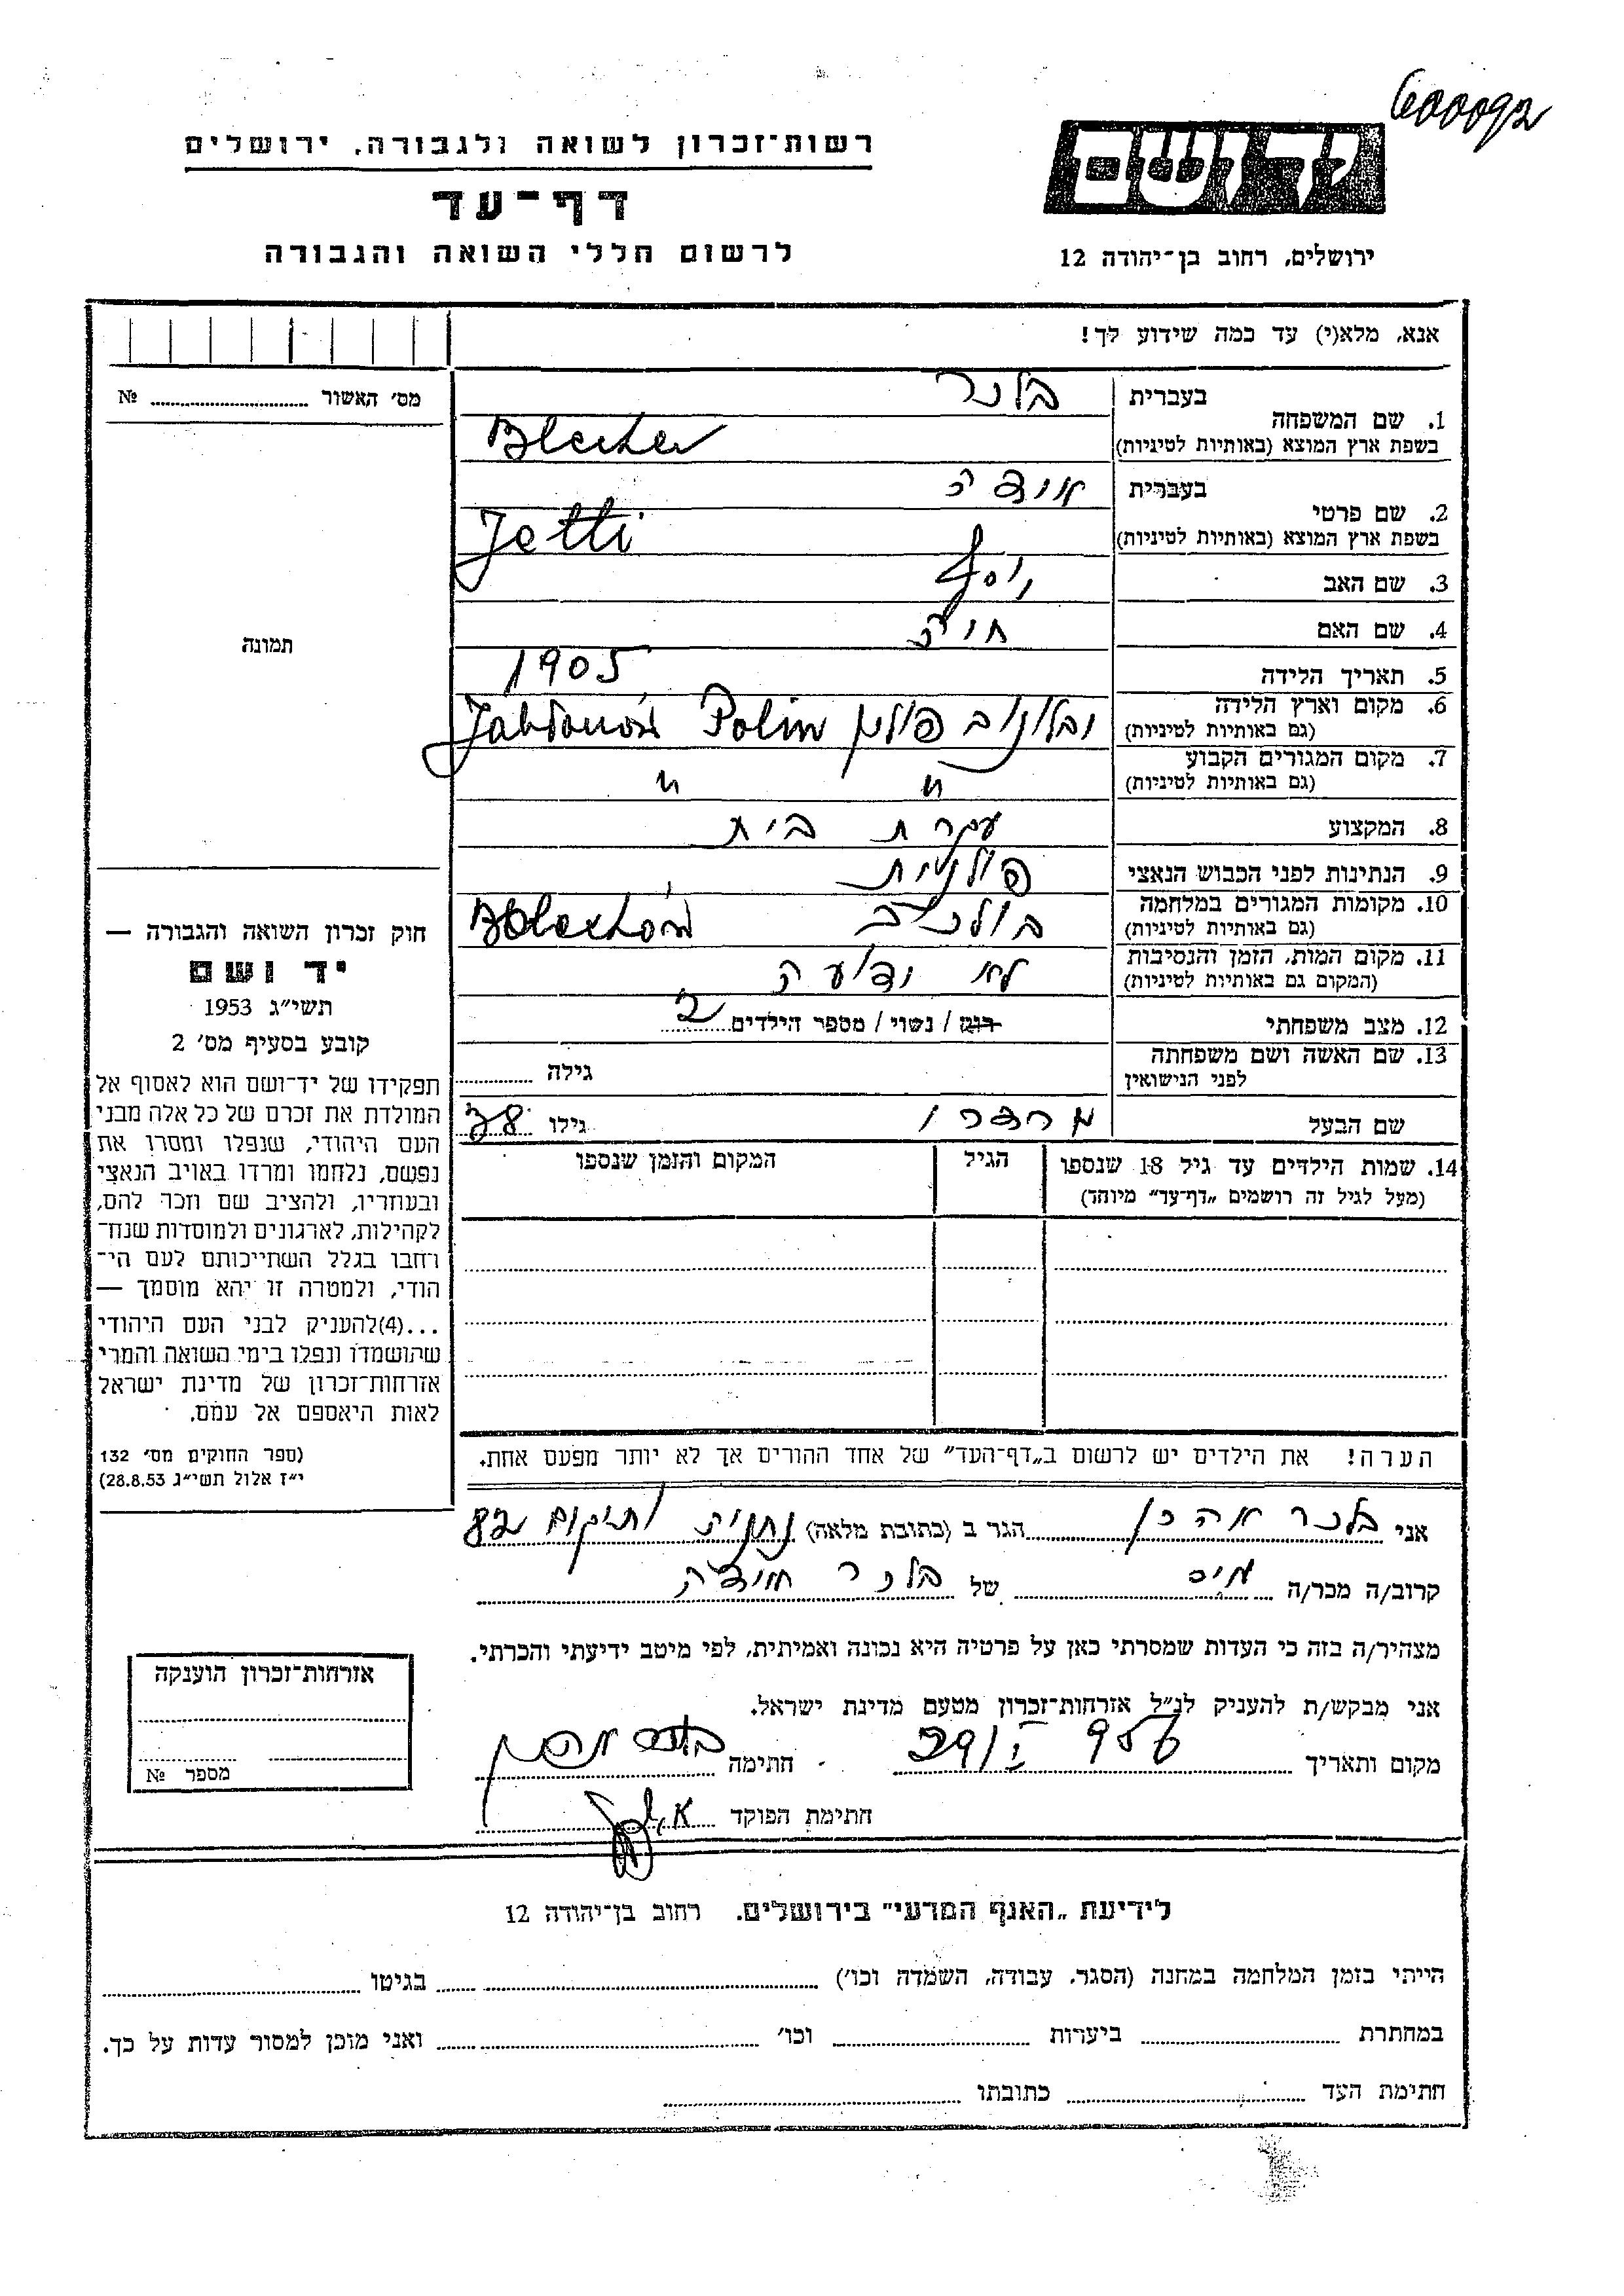 600092
רשות־זכרון לשואה ולגבורה, ירושלים
יד ושם
דף־עד
לרשום חללי השואה והגבורה
ירושלים, רחוב בן־יהודה 12
אנא, מלא(י) עד כמה שידוע לך!
מס׳ האשור № 
בעברית בלכר
1. שם המשפחה
בשפת ארץ המוצא (באותיות לטיניות) Blecher
בעברית
2. שם פרטי
בשפת ארץ המוצא (באותיות לטיניות) Jetti
3. שם האב יוסף
4. שם האם חיה
5. תאריך הלידה 1905
6. מקום וארץ הלידה
(גם באותיות לטיניות) פולין Polin
7. מקום המגורים הקבוע
(גם באותיות לטיניות) " "
8. המקצוע עקרת בית
9. הנתינות לפני הכבוש הנאצי פולנית
10. מקומות המגורים במלחמה
(גם באותיות לטיניות) בולכוב
11. מקום המות, הזמן והנסיבות
(המקום גם באותיות לטיניות) לא ידוע
12. מצב משפחתי רווק / נשוי / מספר הילדים 2
13. שם האשה ושם משפחתה
לפני הנישואין גילה
שם הבעל גילו 38
14. שמות הילדים עד גיל 18 שנספו
(מעל לגיל זה רושמים „דף־עד״ מיוחד)
הגיל
המקום והזמן שנספו
הערה! את הילדים יש לרשום ב„דף־העד״ של אחד ההורים אך לא יותר מפעם אחת.
תמונה
חוק זכרון השואה והגבורה —
יד ושם
תשי״ג 1953
קובע בסעיף מס׳ 2
תפקידו של יד־ושם הוא לאסוף אל
המולדת את זכרם של כל אלה מבני
העם היהודי, שנפלו ומסרו את
נפשם, נלחמו ומרדו באויב הנאצי
ובעוזריו, ולהציב שם וזכר להם,
לקהילות, לארגונים ולמוסדות שנח־
רחבו בגלל השתייכותם לעם הי־
הודי, ולמטרה זו יהא מוסמך —
...(4)להעניק לבני העם היהודי
שהושמדו ונפלו בימי השואה והמרי
אזרחות־זכרון של מדינת ישראל
לאות היאספם אל עמם.
(ספר החוקים מס׳ 132
י״ז אלול תשי״ג 28.8.53)
אני בלכר אהרן הגר ב (כתובת מלאה) נתניה
קרוב/ה מכר/ה של בלכר
מצהיר/ה בזה כי העדות שמסרתי כאן על פרטיה היא נכונה ואמיתית, לפי מיטב ידיעתי והכרתי.
אני מבקש/ת להעניק לנ״ל אזרחות־זכרון מטעם מדינת ישראל.
מקום ותאריך 29/I 956 חתימה
חתימת הפוקד
אזרחות־זכרון הוענקה
מספר №
לידיעת „האגף המדעי״ בירושלים. רחוב בן־יהודה 12
הייתי בזמן המלחמה במחנה (הסגר, עבודה, השמדה וכו׳) בגיטו
במחתרת ביערות וכו׳ ואני מוכן למסור עדות על כך.
חתימת העד כתובתו